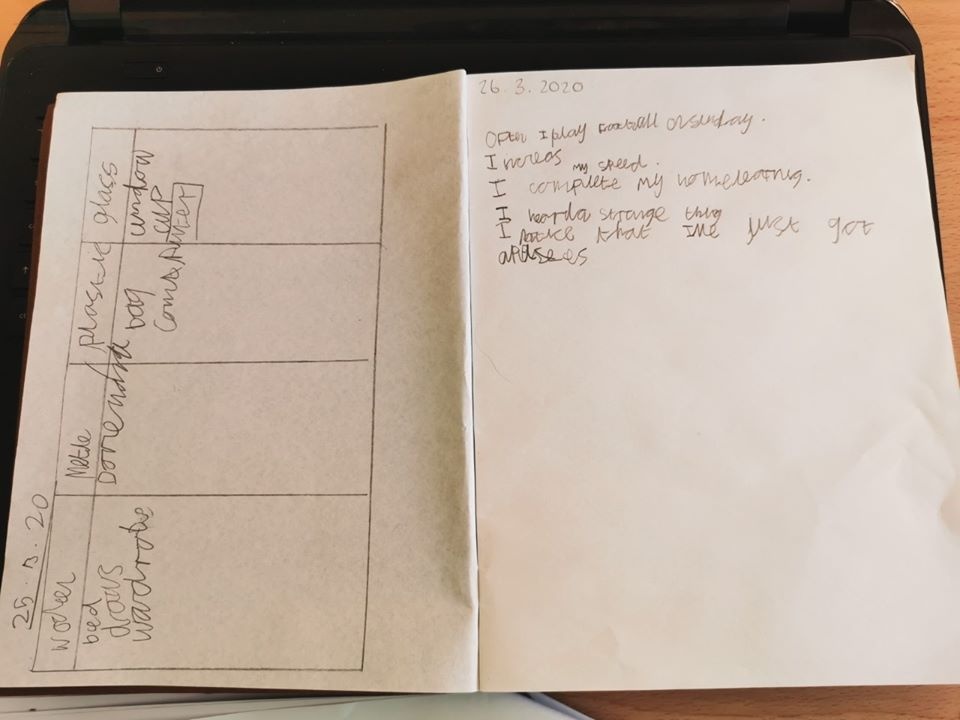 25.3.20
wooden Metle plastic glass
bed
draws
wardrobe
bag
computer
window
cup
26.3.2020
often I play football on sunday.
I increas my speed.
I complete my homelearnig.
I heard a strange thing
I notice that Ive just got